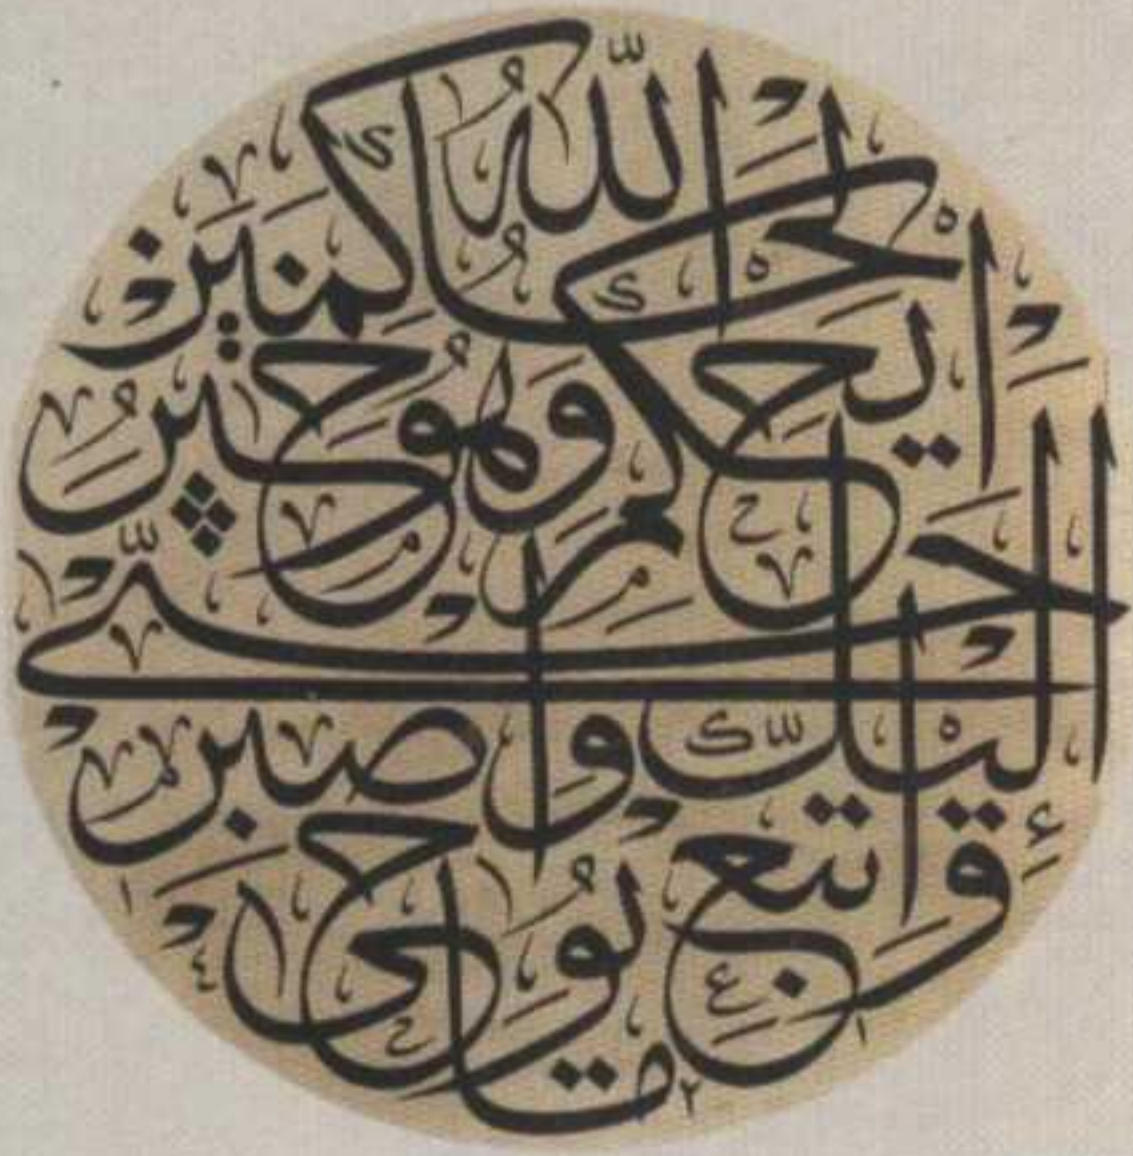 وَاتَّبِعْ مَا يُوحَى
إِلَيْكَ وَاصْبِرْ
حَتَّى
يَحْكُمَ اللّٰهُ وَهُوَ خَيْرُ
الْحَاكِمِينَ